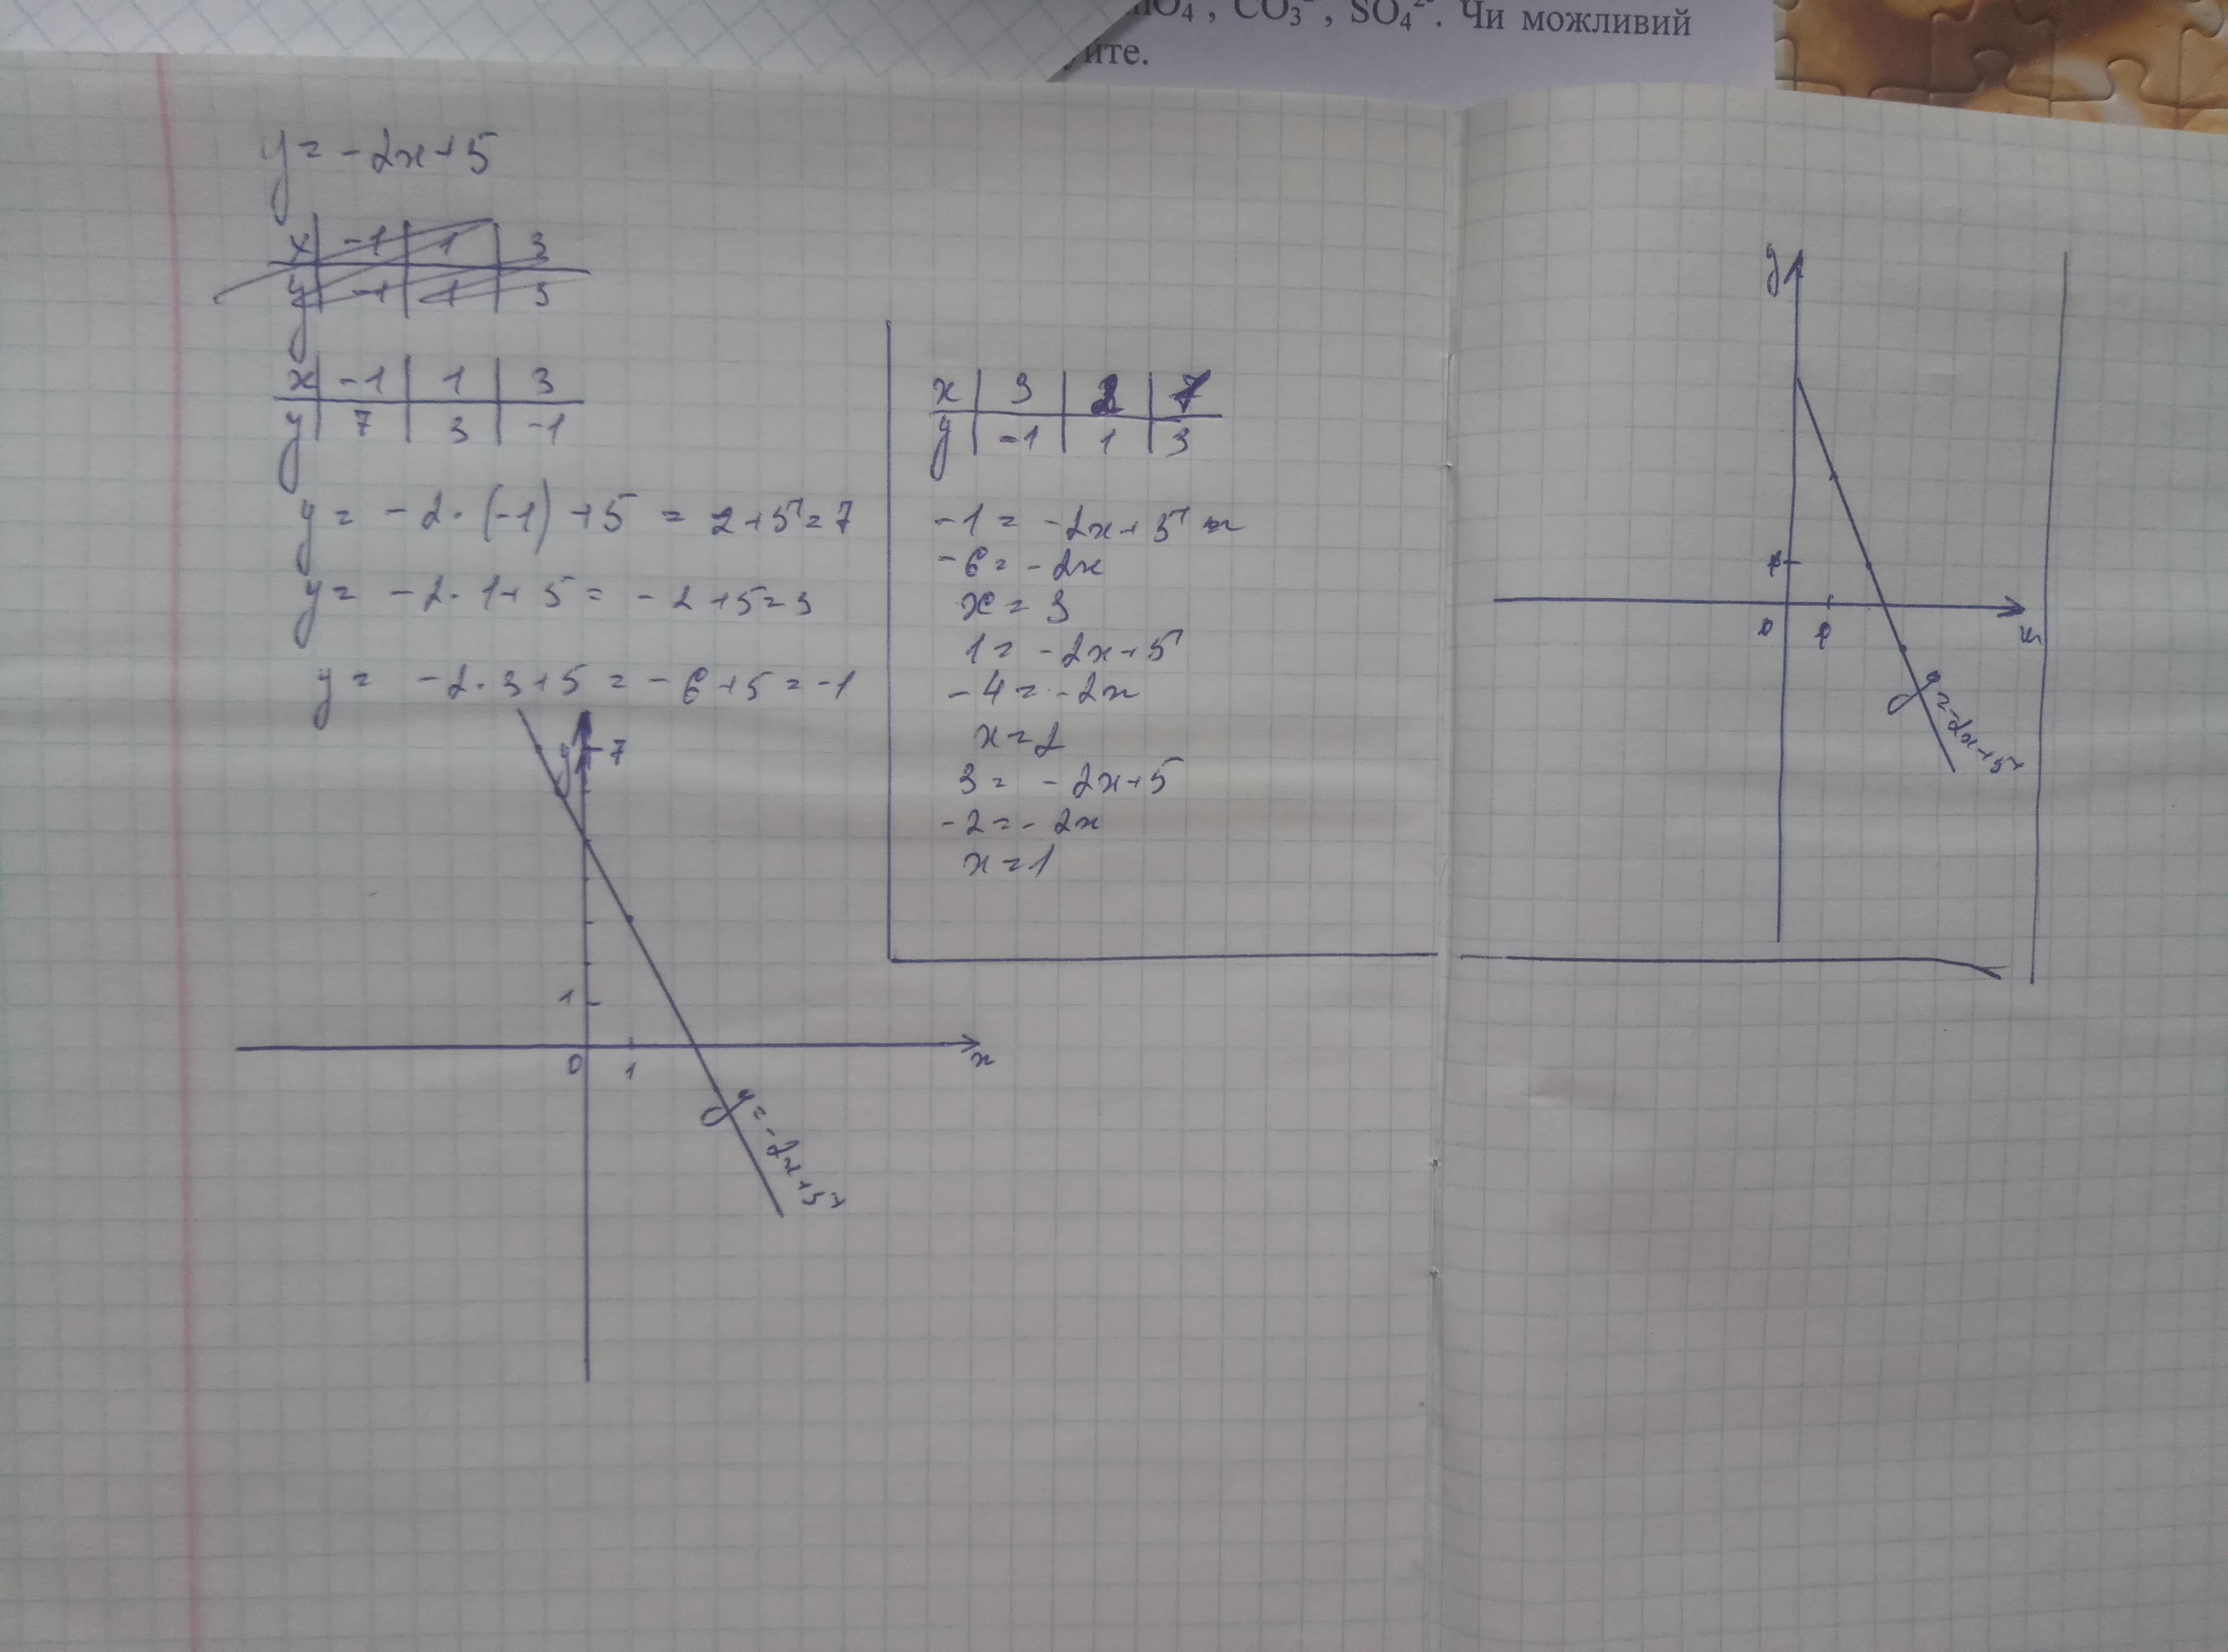 , CO₃²⁻, SO₄²⁻. Чи можливий
y = -2x+5
x | -1 | 1 | 3
y | -1 | 1 | 3
x | -1 | 1 | 3
y | 7 | 3 | -1
y = -2·(-1)+5 = 2+5=7
y = -2·1+5 = -2+5=3
y = -2·3+5 = -6+5=-1
y 7
1
0 1 x
y=-2x+5
x | 3 | 2 |
y | -1 | 1 | 3
-1 = -2x+5
-6 = -2x
x = 3
1 = -2x+5
-4 = -2x
x = 2
3 = -2x+5
-2 = -2x
x = 1
y
0 x
y=-2x+5